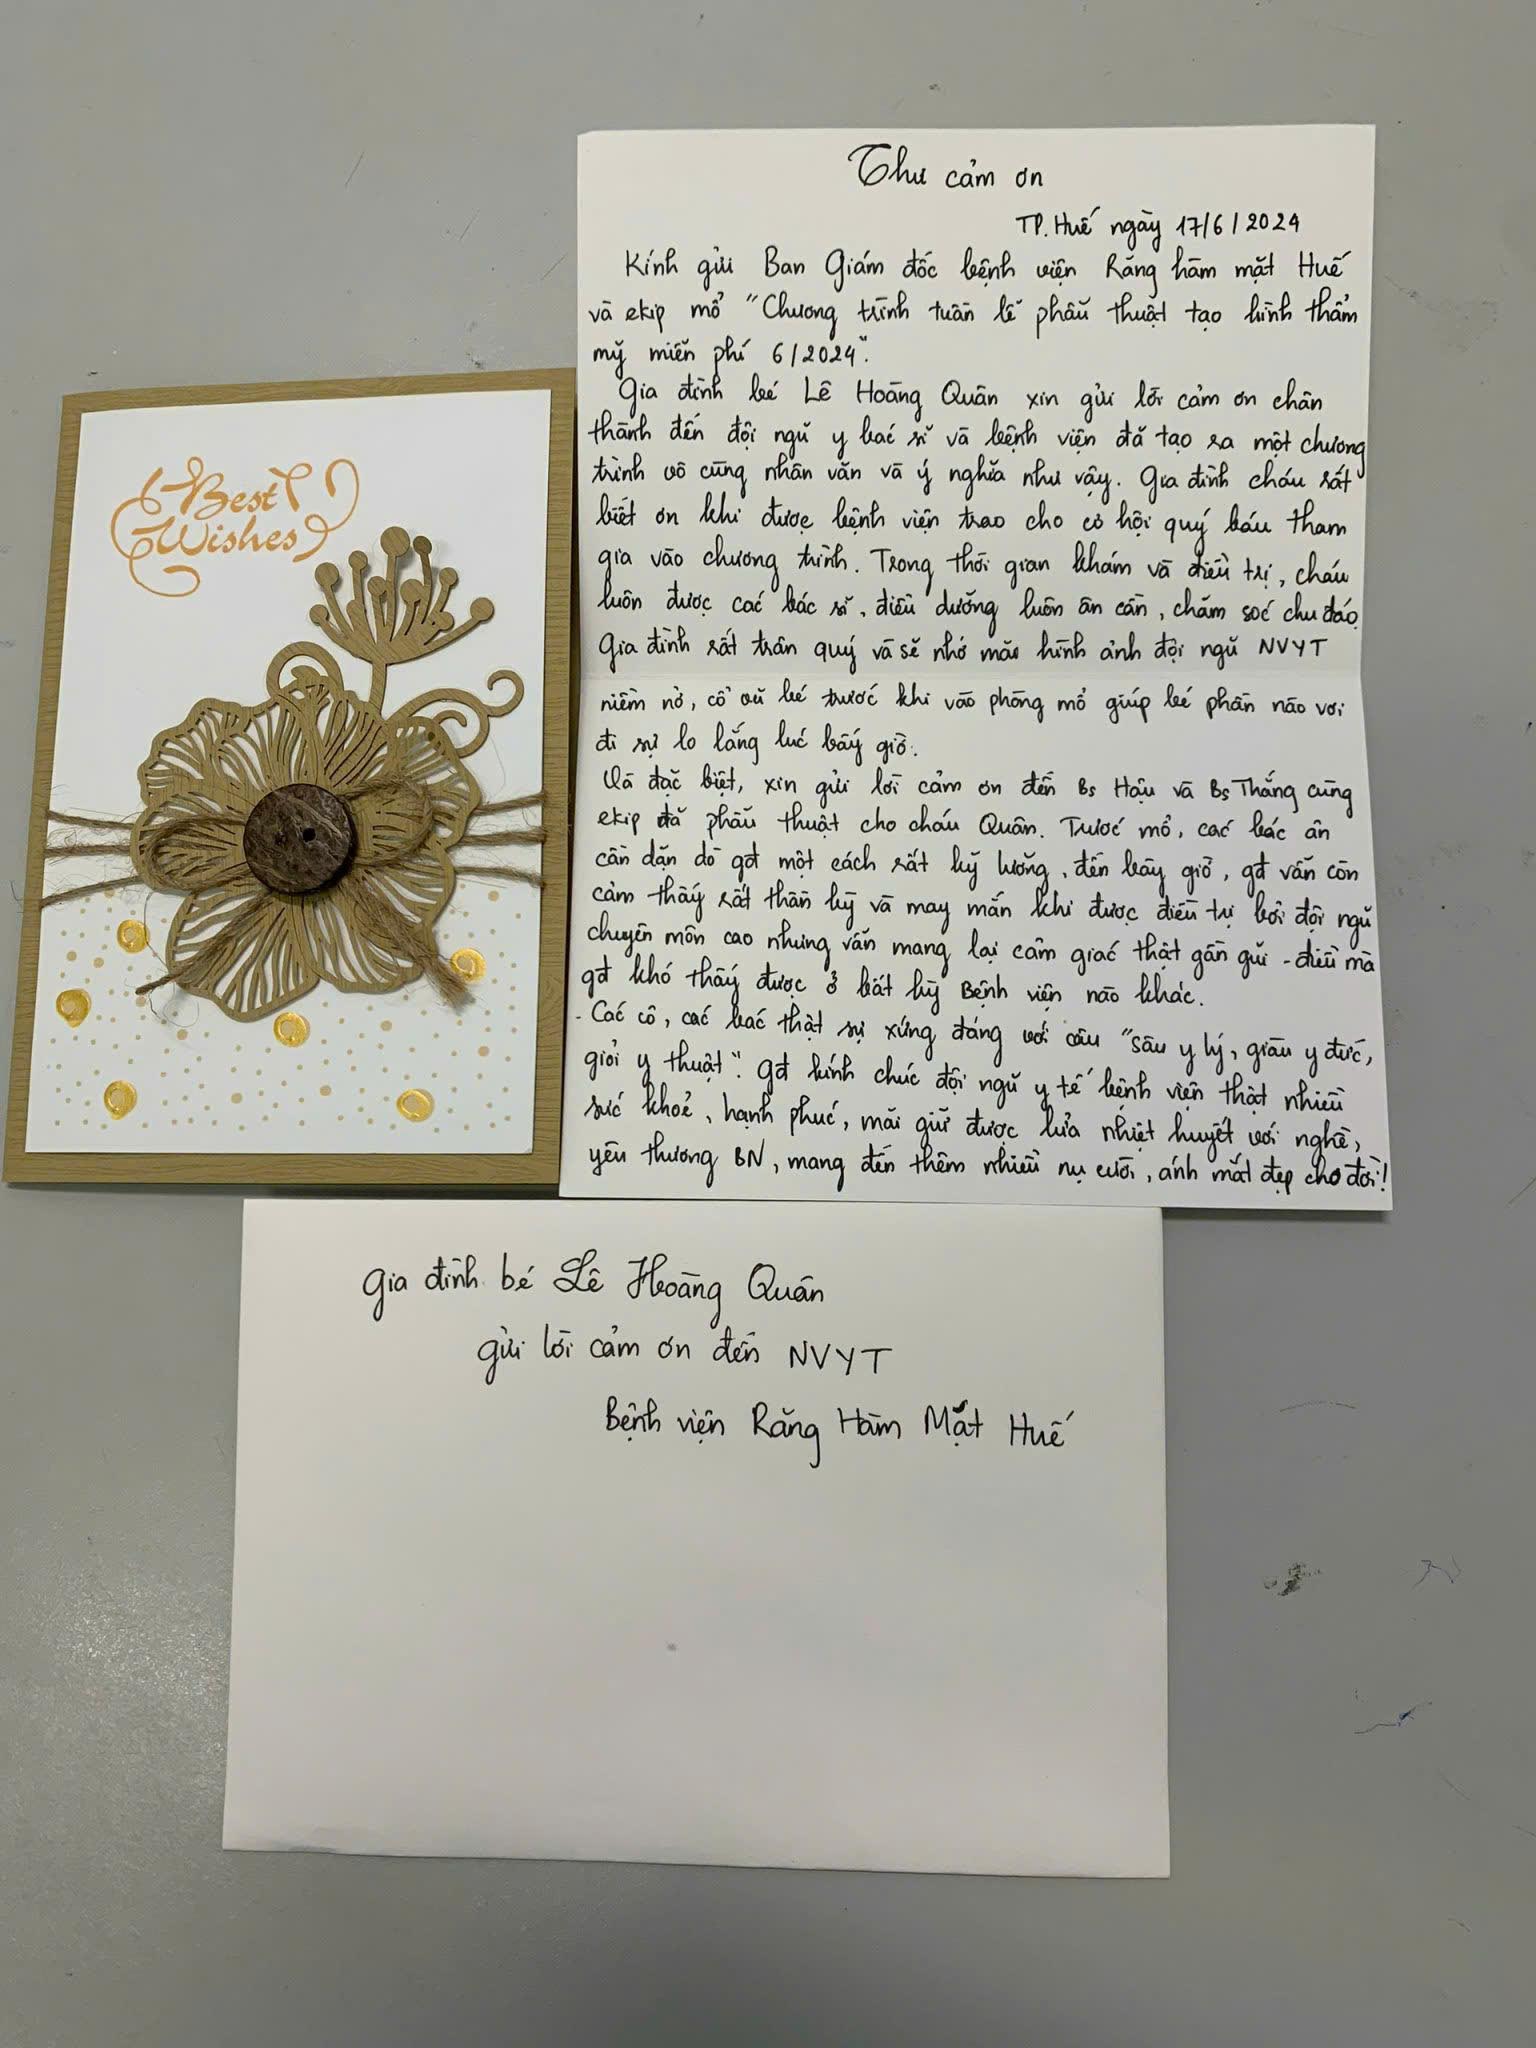 Best
Wishes
Thư cảm ơn
TP. Huế ngày 17/6/2024
Kính gửi Ban Giám đốc bệnh viện Răng hàm mặt Huế
và ekip mổ "Chương trình tuần lễ phẫu thuật tạo hình thẩm
mỹ miễn phí 6/2024".
Gia đình bé Lê Hoàng Quân xin gửi lời cảm ơn chân
thành đến đội ngũ y bác sĩ và bệnh viện đã tạo ra một chương
trình vô cùng nhân văn và ý nghĩa như vậy. Gia đình cháu rất
biết ơn khi được bệnh viện trao cho cơ hội quý báu tham
gia vào chương trình. Trong thời gian khám và điều trị, cháu
luôn được các bác sĩ, điều dưỡng luôn ân cần, chăm sóc chu đáo.
Gia đình rất trân quý và sẽ nhớ mãi hình ảnh đội ngũ NVYT
niềm nở, cổ vũ bé trước khi vào phòng mổ giúp bé phần nào vơi
đi sự lo lắng lúc bấy giờ.
Và đặc biệt, xin gửi lời cảm ơn đến Bs Hậu và Bs Thắng cùng
ekip đã phẫu thuật cho cháu Quân. Trước mổ, các bác ân
cần dặn dò gđ một cách rất kỹ lưỡng, đến bây giờ, gđ vẫn còn
cảm thấy rất thần kỳ và may mắn khi được điều trị bởi đội ngũ
chuyên môn cao nhưng vẫn mang lại cảm giác thật gần gũi - điều mà
gđ khó thấy được ở bất kỳ Bệnh viện nào khác.
- Các cô, các bác thật sự xứng đáng với câu "Sâu y lý, giàu y đức,
giỏi y thuật". Gđ kính chúc đội ngũ y tế bệnh viện thật nhiều
sức khoẻ, hạnh phúc, mãi giữ được lửa nhiệt huyết với nghề,
yêu thương BN, mang đến thêm nhiều nụ cười, ánh mắt đẹp cho đời!
Gia đình bé Lê Hoàng Quân
gửi lời cảm ơn đến NVYT
Bệnh viện Răng Hàm Mặt Huế